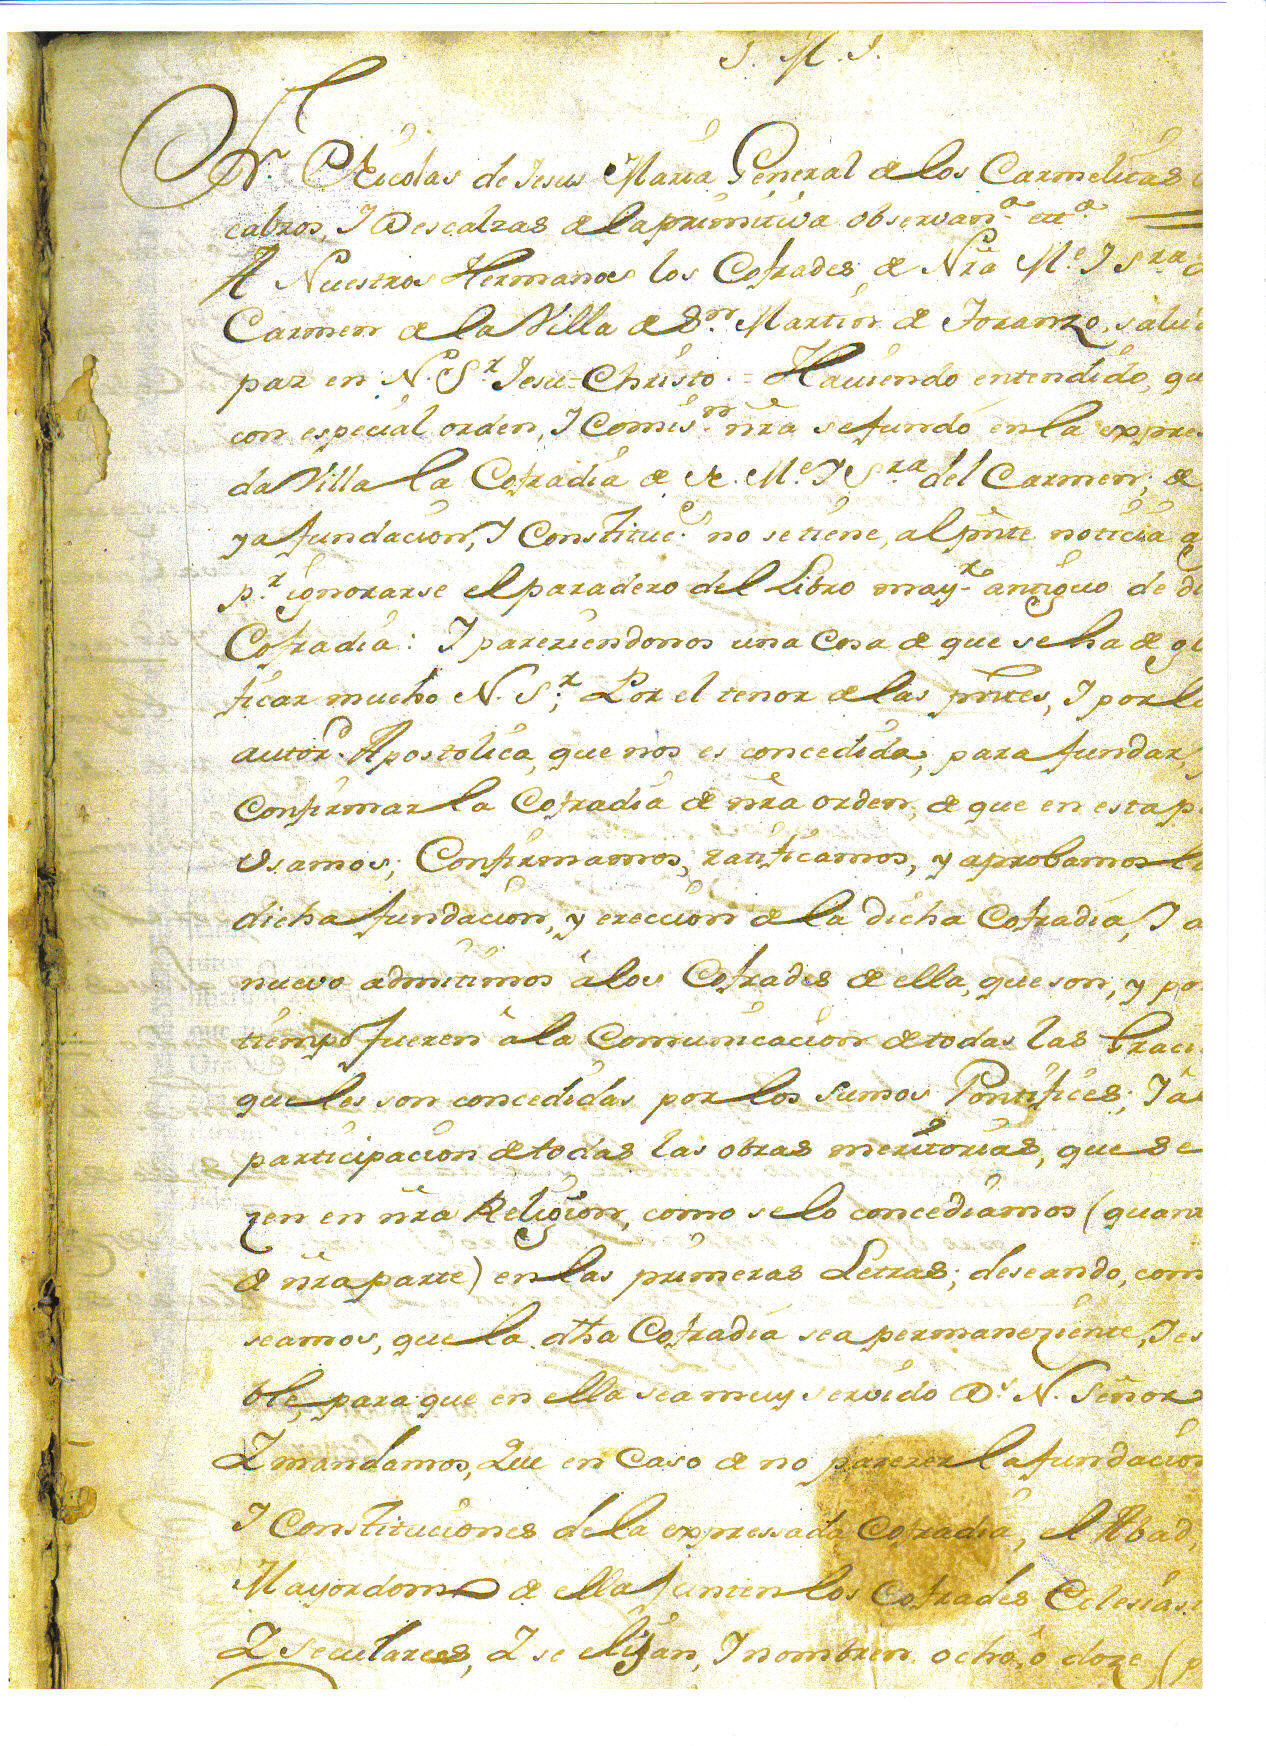 J. M. J.
Fr. Nicolas de Jesus Maria General de los Carmelitas
calzos, I Descalzas de la primitiva observan.ᵃ ettᵃ.
A Nuestros Hermanos los Cofrades de Nr̃a M.ᵉ I Sʳᵃ
Carmen de la Villa de Sⁿ. Martin de Toranzo, salu
paz en N. Sʳ. Jesu=Christo. = Haviendo entendido, qu
con especial orden, I Comisⁿ. nr̃a se fundó en la expres
da Villa la Cofradia de N. Mᵉ. I Sʳᵃ del Carmen, de
ya fundacion, I Constituc.ˢ no se tiene, al pñte noticia
pʳ. ignorarse el paradero del Libro mayʳ. antiguo de di
Cofradia: I pareziendonos una cosa de que se ha de
ficar mucho N. Sʳ; Por el tenor de las pñtes, I por la
autorᵈ. Apostolica, que nos es concedida, para fundar,
Confirmar la Cofradia de nr̃a orden, de que en esta p
Usamos; Confirmamos, ratificamos, y aprobamos la
dicha fundacion, y ereccion de la dicha Cofradia, I a
nuevo admitimos á los Cofrades de ella, que son, y por
tiempo fueren â la Comunicacion de todas las Graci
que les son concedidas por los Sumos Pontifices; I â
participacion de todas las obras meritorias, que se
zen en nr̃a Religion, como se lo concediamos (quant
de nr̃a parte) en las primeras Letras; deseando, com
seamos, que la dha Cofradia sea permaneziente, I es
ble, para que en ella sea muy servido Dˢ. N. Señor
I mandamos, Que en Caso de no parezer la fundacion
I Constituciones de la expressada Cofradia, el Abad,
Mayordomo de ella junten los Cofrades Eclesias
I seculares, I se elijan, I nombren ocho, ô doze (p